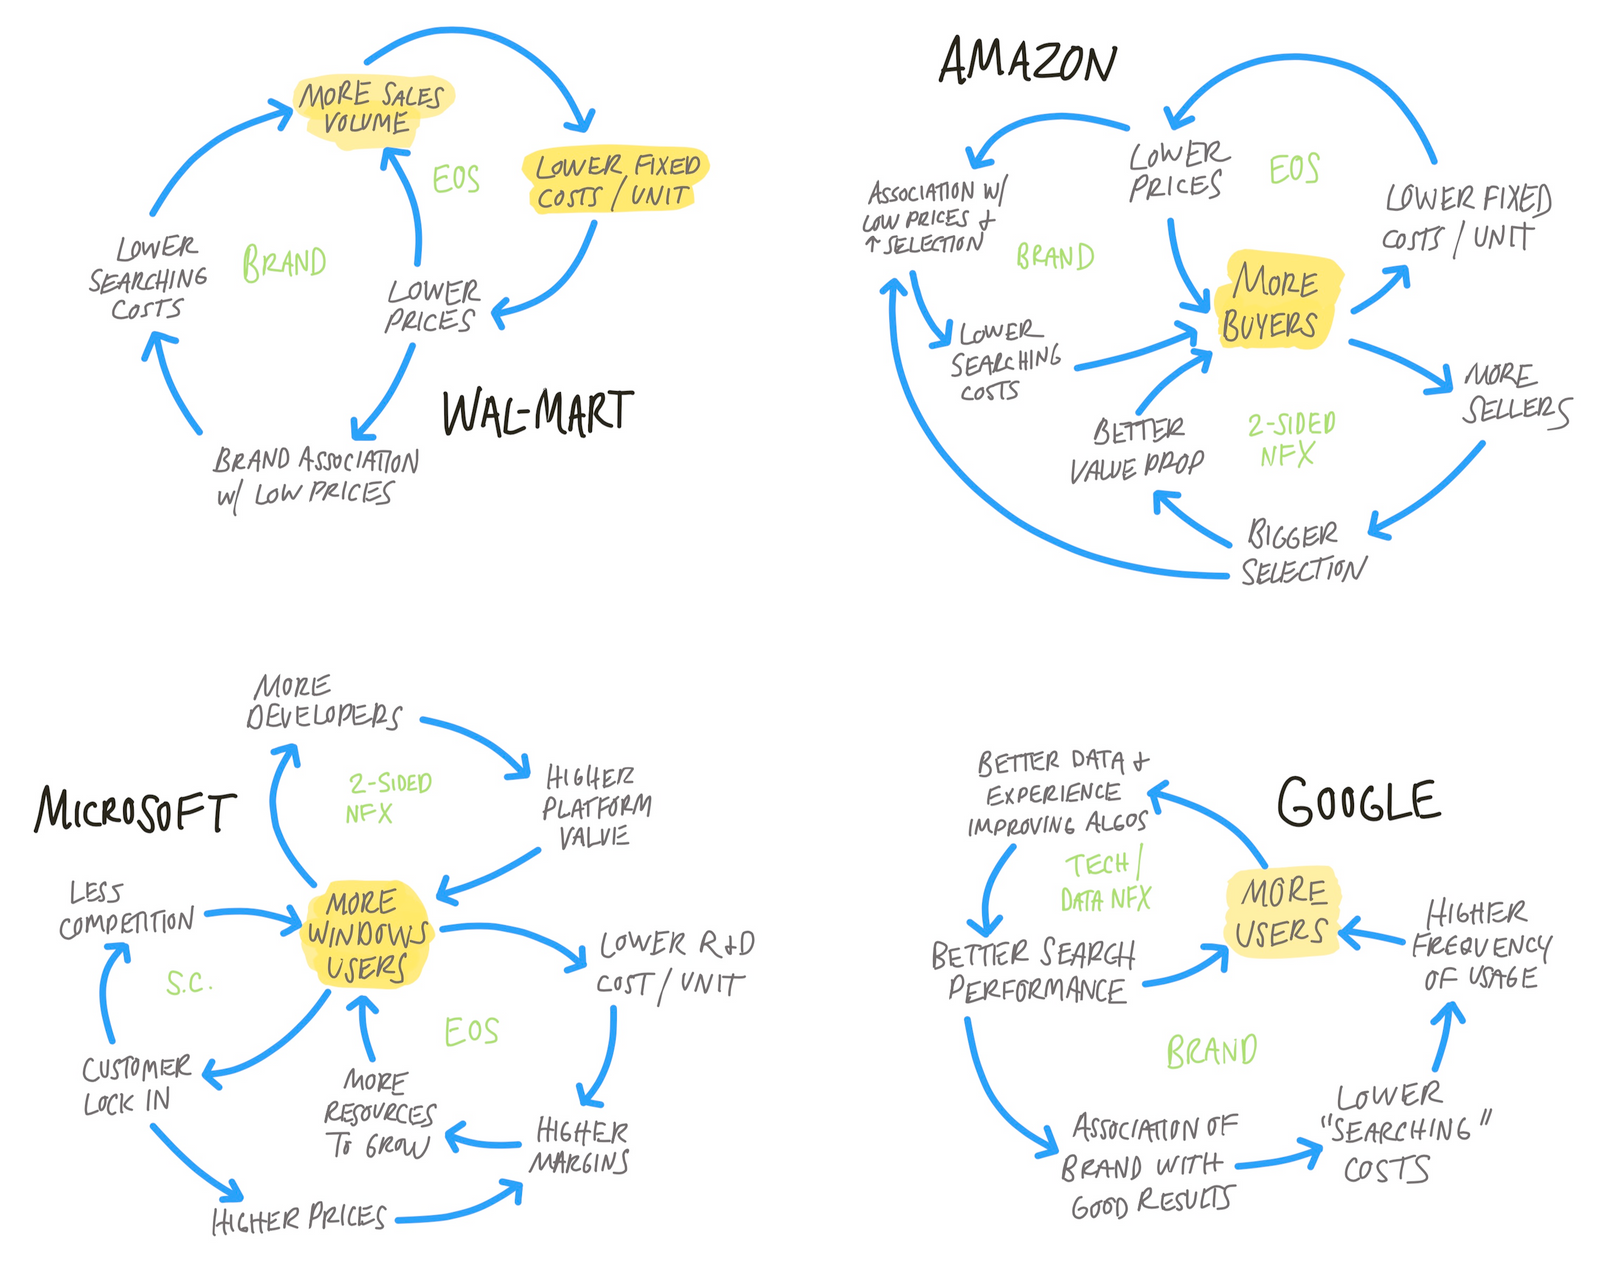 MORE SALES
VOLUME
EOS
LOWER FIXED
COSTS / UNIT
LOWER
SEARCHING
COSTS
BRAND
LOWER
PRICES
WAL-MART
BRAND ASSOCIATION
W/ LOW PRICES
AMAZON
LOWER
PRICES
EOS
ASSOCIATION W/
LOW PRICES +
↑ SELECTION
BRAND
LOWER FIXED
COSTS / UNIT
MORE
BUYERS
LOWER
SEARCHING
COSTS
MORE
SELLERS
BETTER
VALUE PROP
2-SIDED
NFX
BIGGER
SELECTION
MORE
DEVELOPERS
MICROSOFT
2-SIDED
NFX
HIGHER
PLATFORM
VALUE
LESS
COMPETITION
MORE
WINDOWS
USERS
LOWER R+D
COST / UNIT
S.C.
EOS
CUSTOMER
LOCK IN
MORE
RESOURCES
TO GROW
HIGHER
MARGINS
HIGHER PRICES
BETTER DATA +
EXPERIENCE
IMPROVING ALGOS
GOOGLE
TECH /
DATA NFX
MORE
USERS
HIGHER
FREQUENCY
OF USAGE
BETTER SEARCH
PERFORMANCE
BRAND
ASSOCIATION OF
BRAND WITH
GOOD RESULTS
LOWER
"SEARCHING"
COSTS